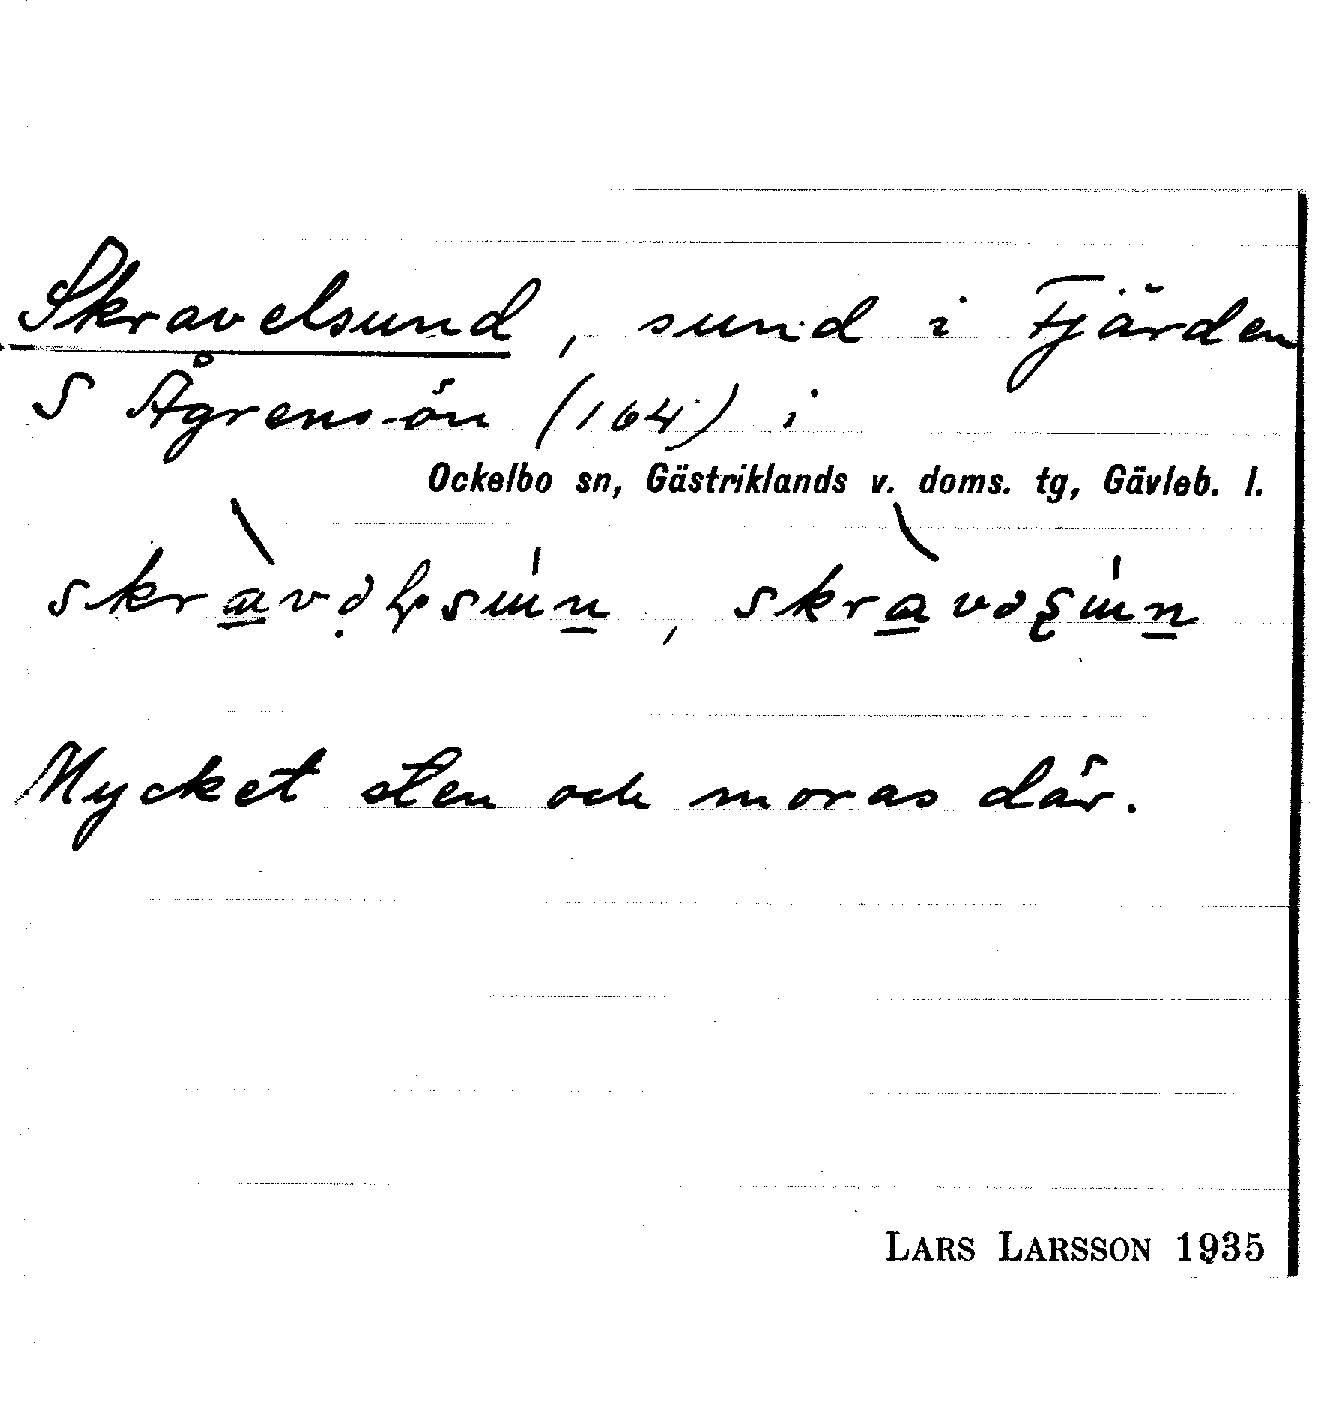 Skravelsund, sund i Fjärden
S Ågrens-ön (164) i
Ockelbo sn, Gästriklands v. doms. tg, Gävleb. l.
Mycket sten och moras där.
LARS LARSSON 1935